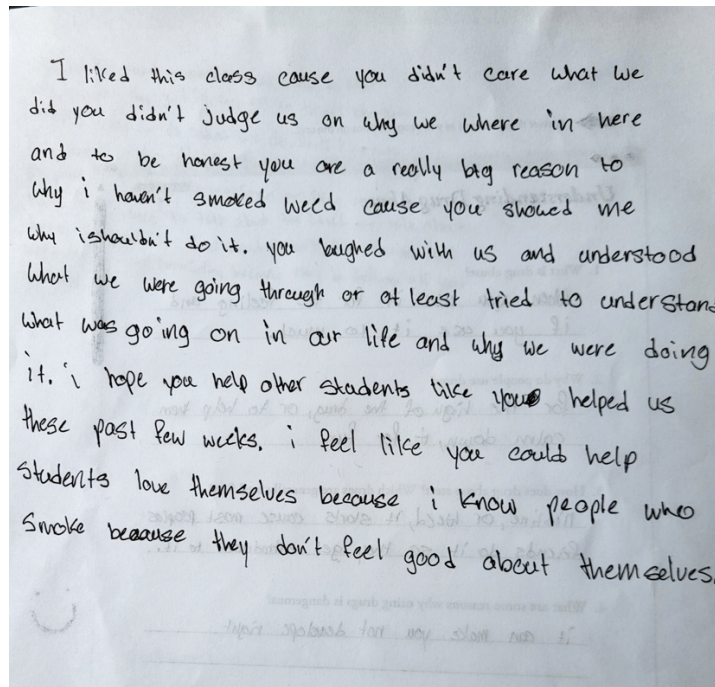 I liked this class cause you didn't care what we
did you didn't judge us on why we where in here
and to be honest you are a really big reason to
why i haven't smoked weed cause you showed me
why i shouldn't do it. you laughed with us and understood
what we were going through or at least tried to understand
what was going on in our life and why we were doing
it. i hope you help other students like you helped us
these past few weeks. i feel like you could help
students love themselves because i know people who
smoke because they don't feel good about themselves.